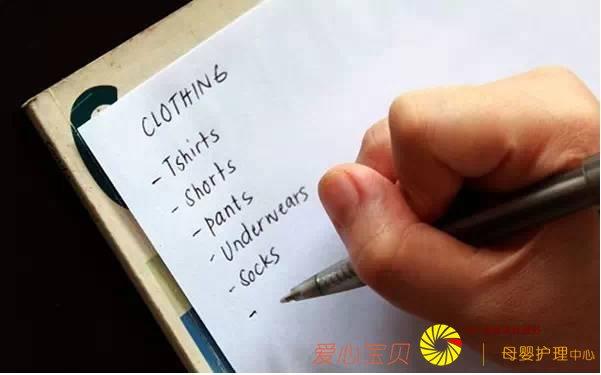 CLOTHING
- Tshirts
- shorts
- pants
- Underwears
- socks
-
爱心宝贝
母婴护理中心